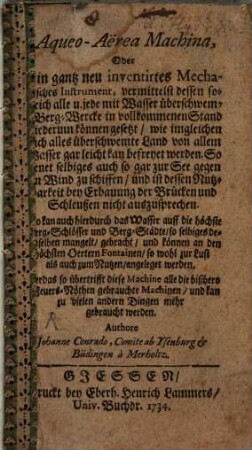 Aqueo-Aërea Machina,
Oder
in gantz neu inventirtes Mecha-
sches Instrument, vermittelst dessen so-
eich alle u. jede mit Wasser überschwem-
Berg-Wercke in vollkommenen Stand
iederum können gesetzt / wie imgleichen
ch alles überschwemte Land von allem
asser gar leicht kan befreyet werden. So
enet selbiges auch so gar zur See gegen
n Wind zu schiffen / und ist dessen Nutz-
arkeit bey Erbauung der Brücken und
Schleußen nicht auszusprechen.
o kan auch hierdurch das Wasser auff die höchste
erg-Schlösser und Berg-Städte / so selbiges de-
selben mangelt / gebracht / und können an den
höchsten Oertern Fontainen / so wohl zur Lust
als auch zum Nutzen / angeleget werden.
erdas so übertrifft diese Machine alle die bißhero
Feuers-Nöthen gebrauchte Machinen / und kan
zu vielen andern Dingen mehr
gebraucht werden.
Authore
Johanne Conrado, Comite ab Ysenburg &
Büdingen à Merholtz.
GIESSEN /
ruckt bey Eberh. Henrich Lammers /
Univ. Buchdr. 1734.